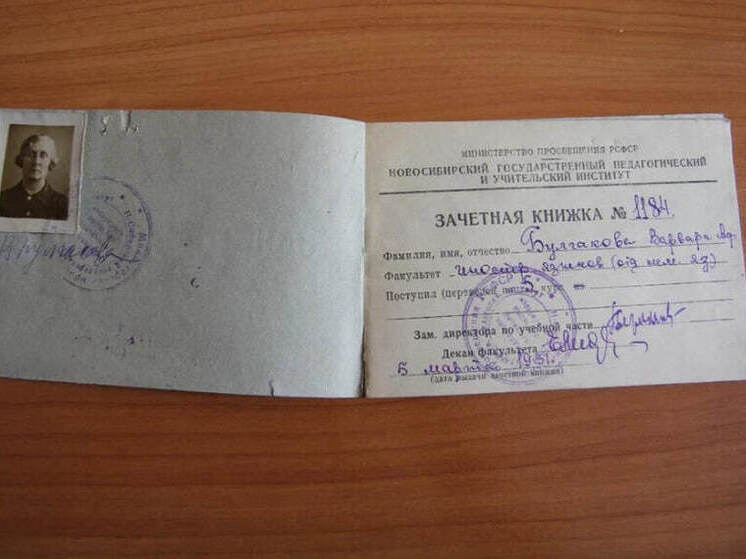 МИНИСТЕРСТВО ПРОСВЕЩЕНИЯ РСФСР
НОВОСИБИРСКИЙ ГОСУДАРСТВЕННЫЙ ПЕДАГОГИЧЕСКИЙ
И УЧИТЕЛЬСКИЙ ИНСТИТУТ
ЗАЧЕТНАЯ КНИЖКА № 1184
Фамилия, имя, отчество Булгакова Варвара
Факультет иностр языков (отд нем яз)
Поступил 5 курс
Зам. директора по учебной части
Декан факультета
5 марта 1951
(дата выдачи зачетной книжки)